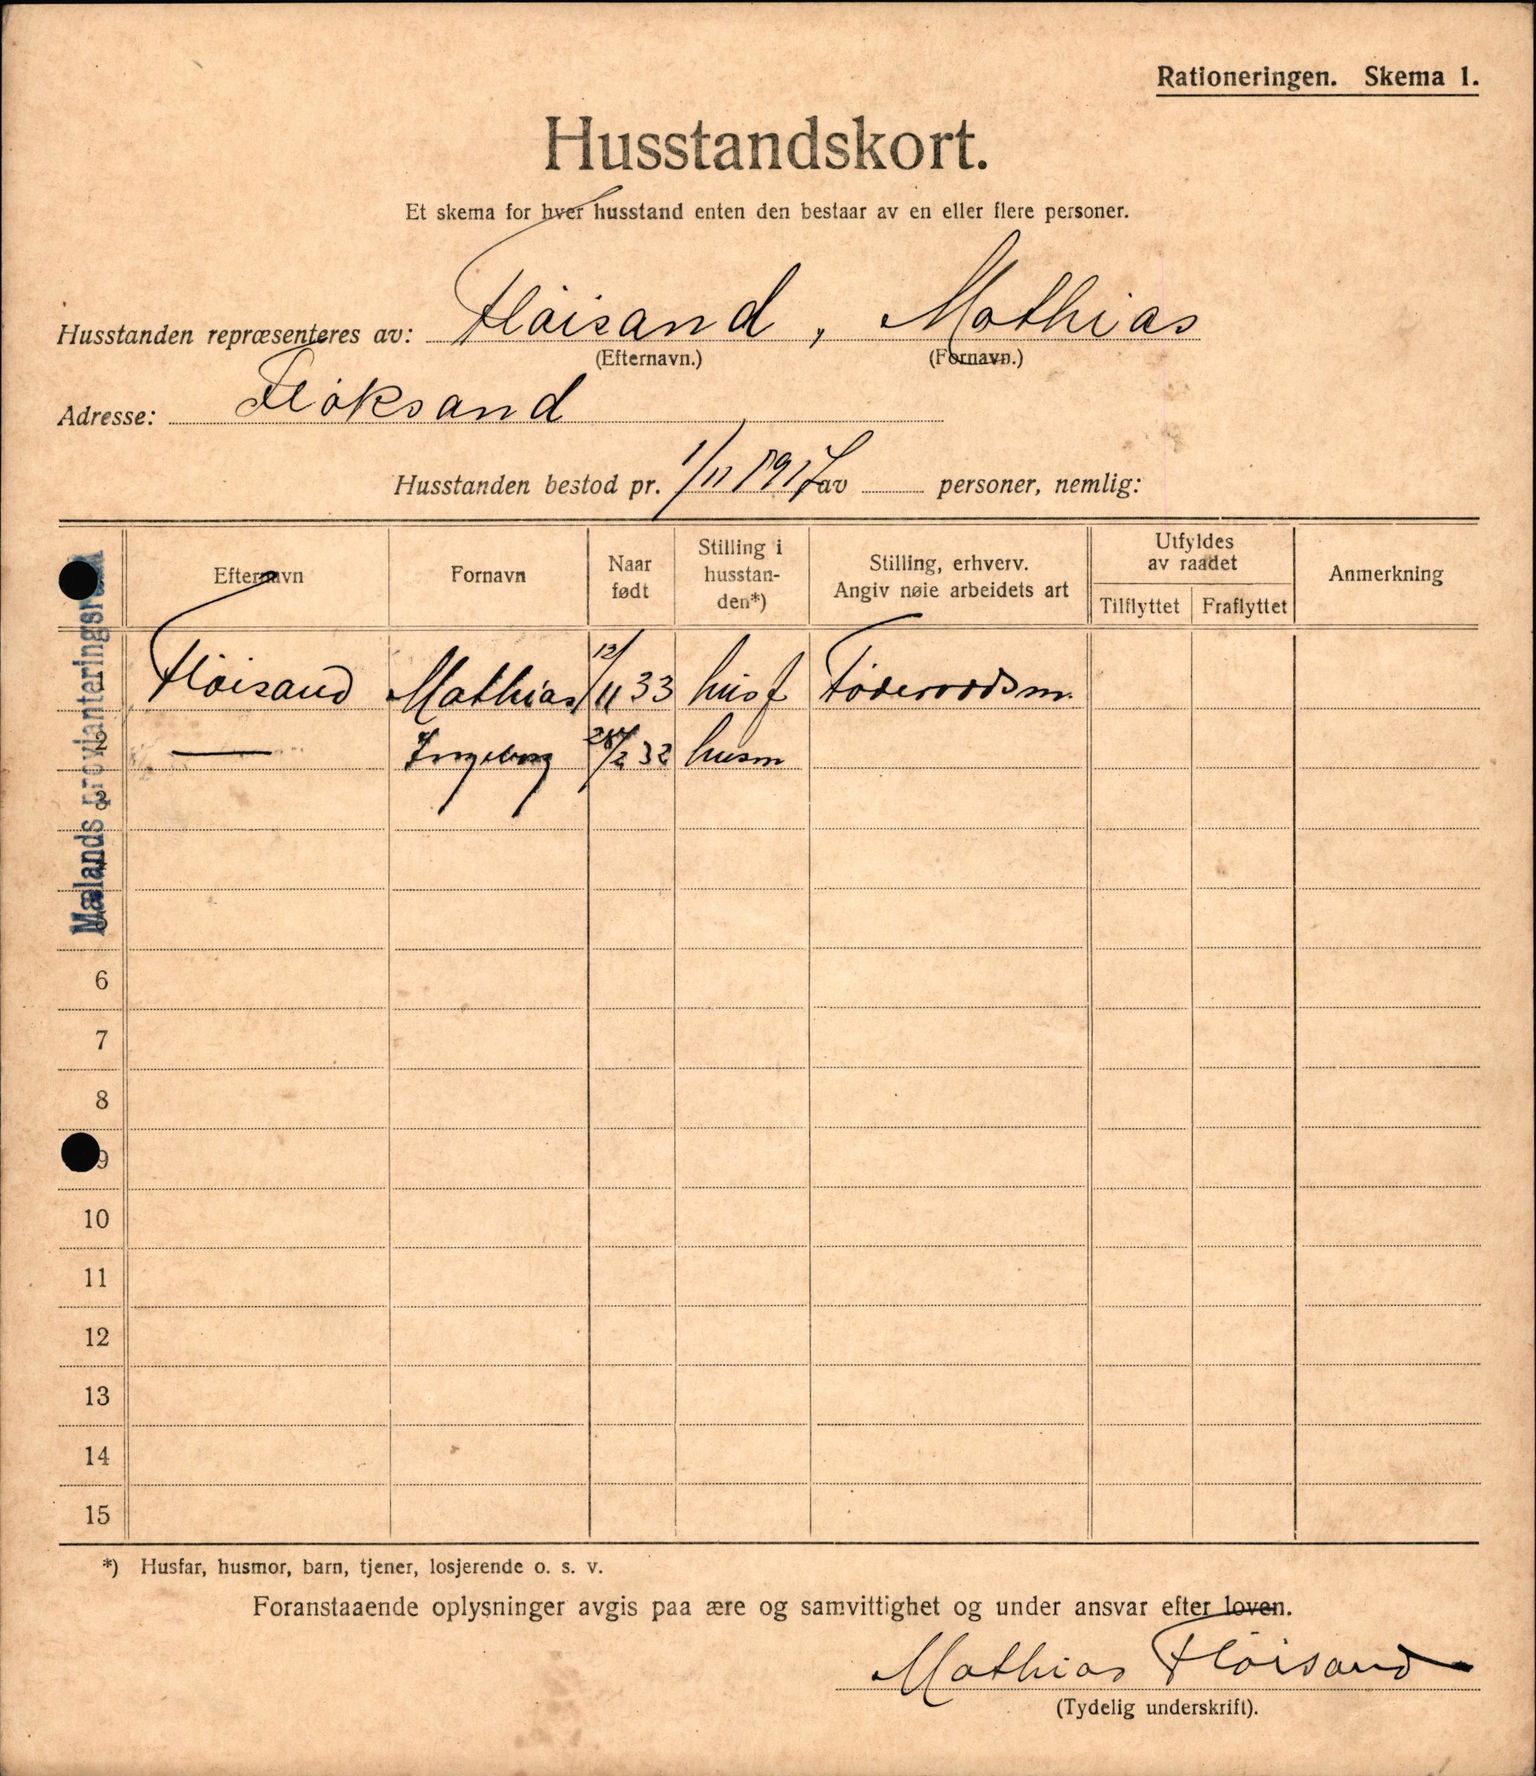 Rationeringen. Skema 1.
Husstandskort.
Et skema for hver husstand enten den bestaar av en eller flere personer.
Husstanden repræsenteres av: Fløisand, Mathias
(Efternavn.) (Fornavn.)
Adresse: Fløksand
Husstanden bestod pr. 1/11 1917 av personer, nemlig:
Efternavn Fornavn Naar født Stilling i husstan-den*) Stilling, erhverv. Angiv nøie arbeidets art Utfyldes av raadet Tilflyttet Fraflyttet Anmerkning
Fløisand Mathias 12/11 33 husf Föderaadsm.
2 — Ingeborg 28/2 32 husm
3
6
7
8
9
10
11
12
13
14
15
Mælands provianteringsraad
*) Husfar, husmor, barn, tjener, losjerende o. s. v.
Foranstaaende oplysninger avgis paa ære og samvittighet og under ansvar efter loven.
Mathias Fløisand
(Tydelig underskrift).